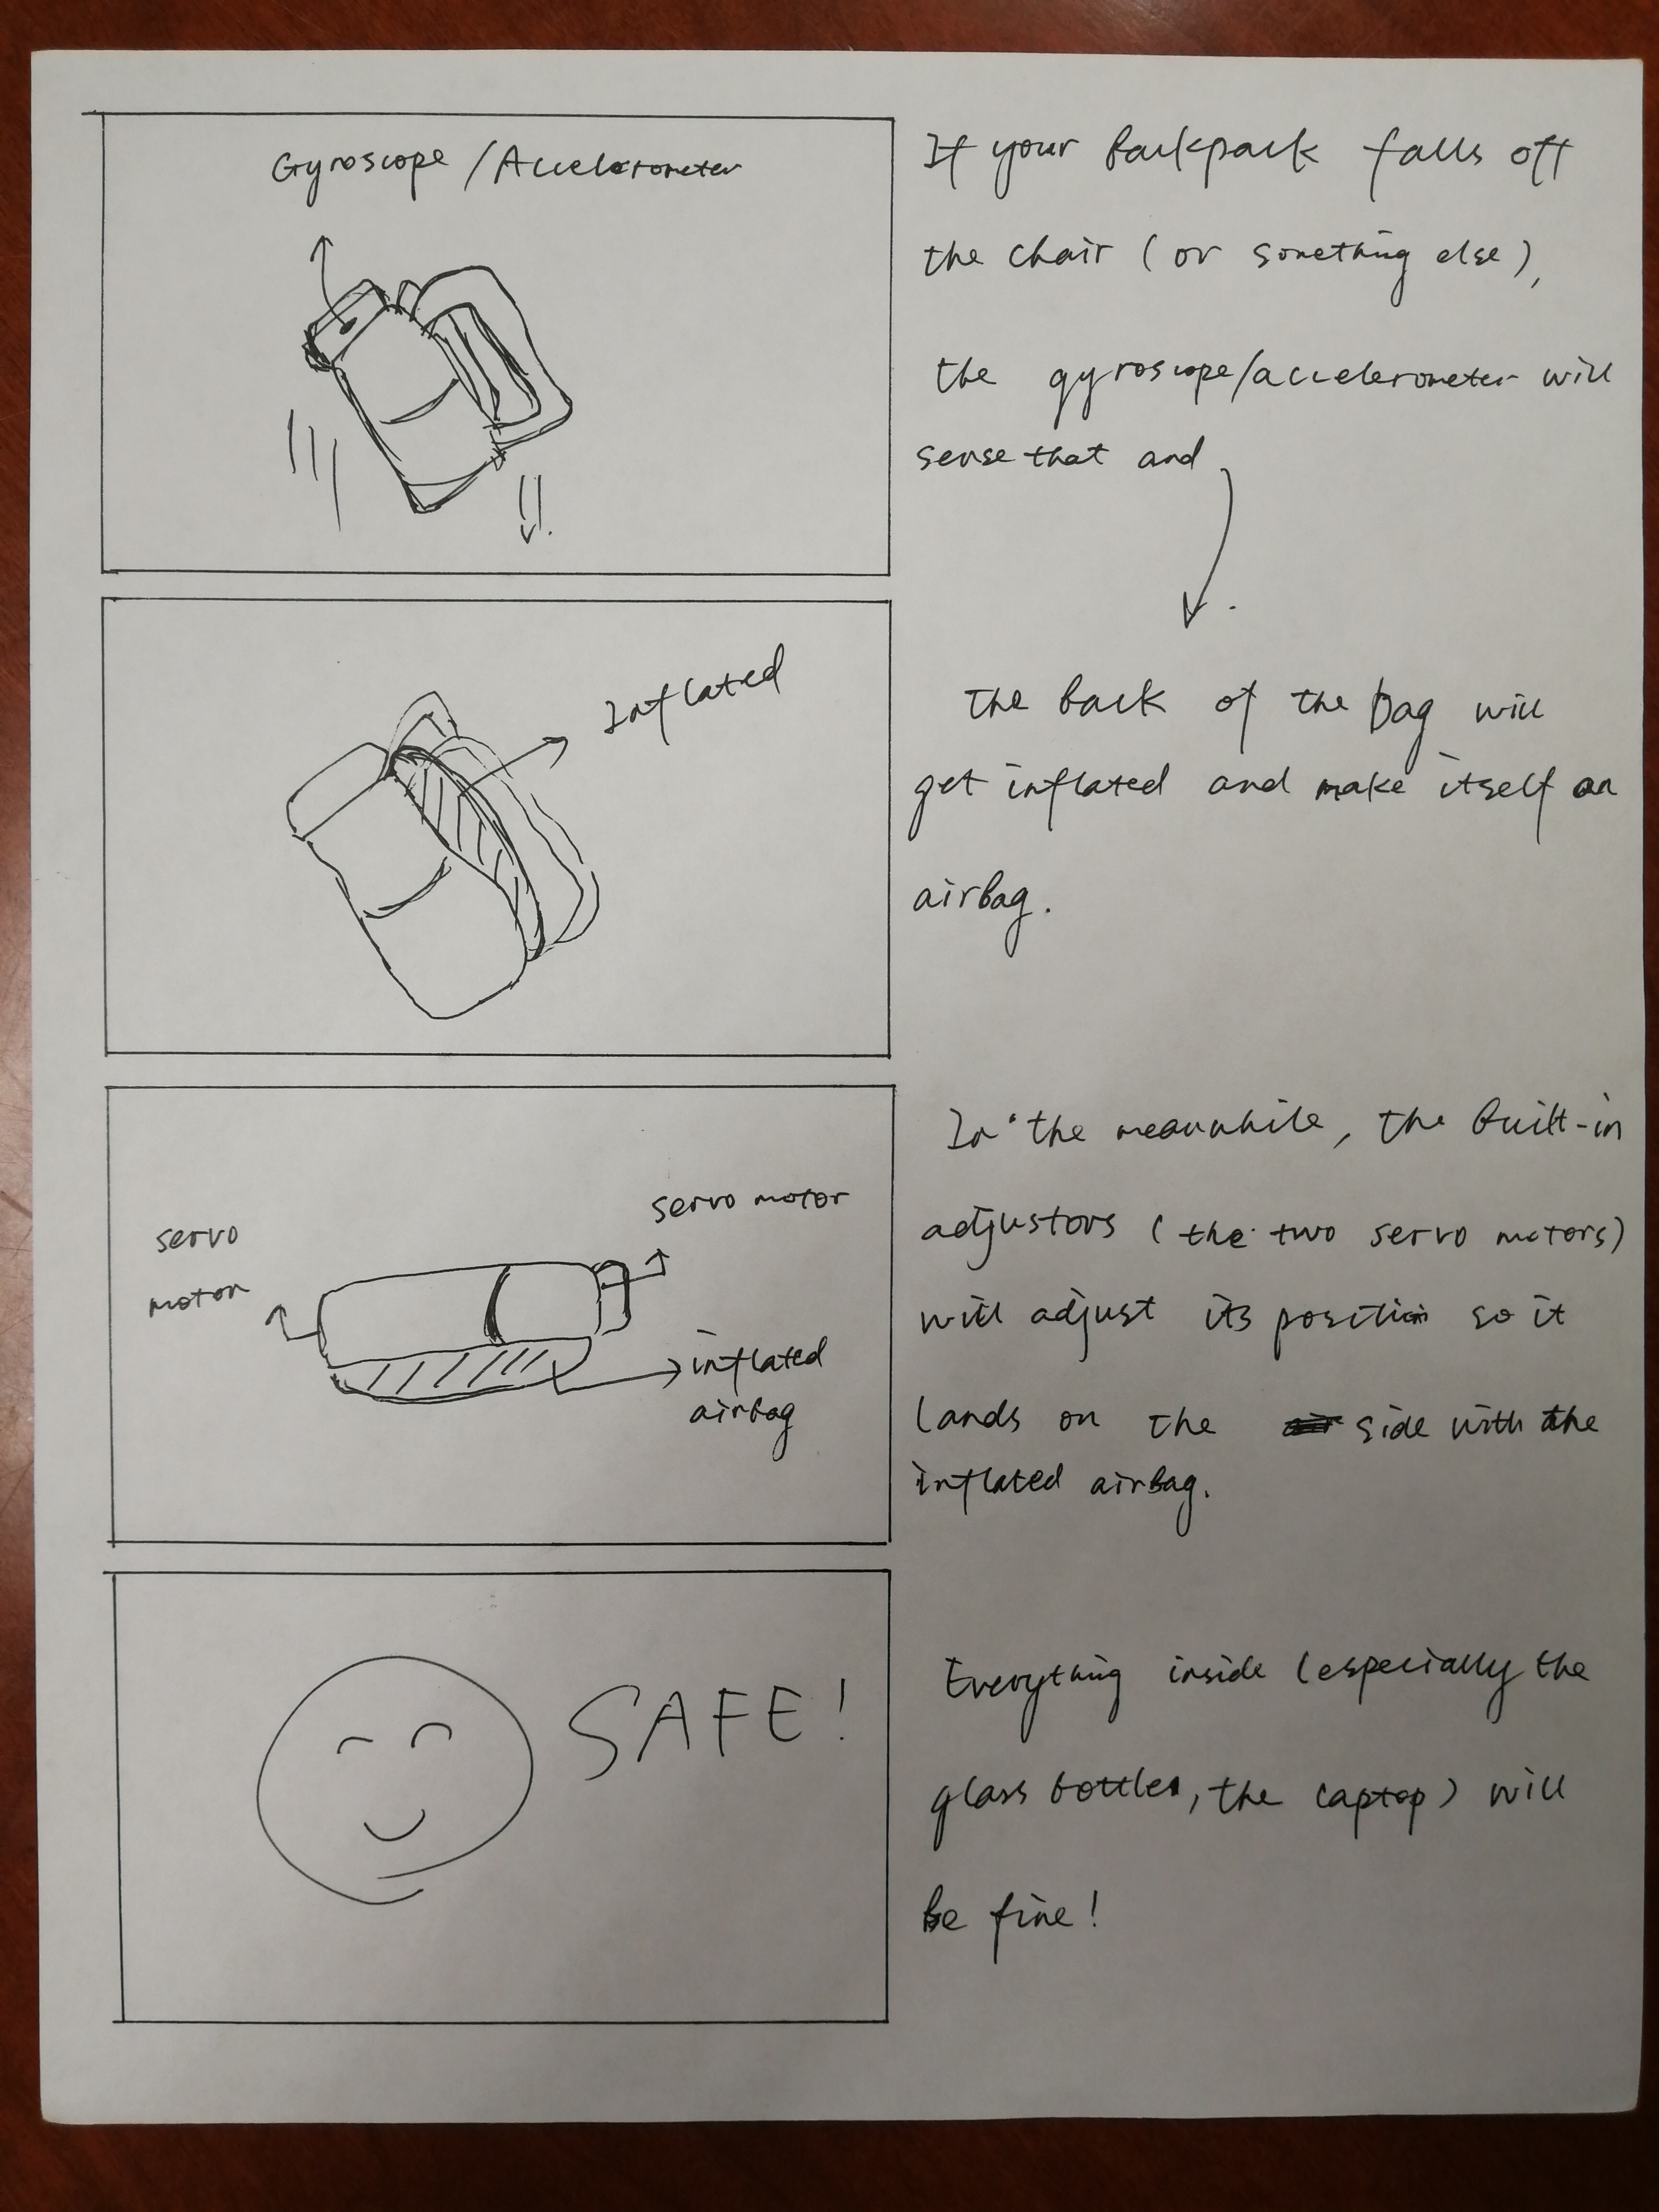 Gyroscope / Accelerometer
If your backpack falls off
the chair (or something else),
the gyroscope/accelerometer will
sense that and
Inflated
The back of the bag will
get inflated and make itself an
airbag.
servo motor
servo
motor
inflated
airbag
In the meanwhile, the built-in
adjustors (the two servo motors)
will adjust its position so it
lands on the side with the
inflated airbag.
SAFE!
Everything inside (especially the
glass bottles, the laptop) will
be fine!